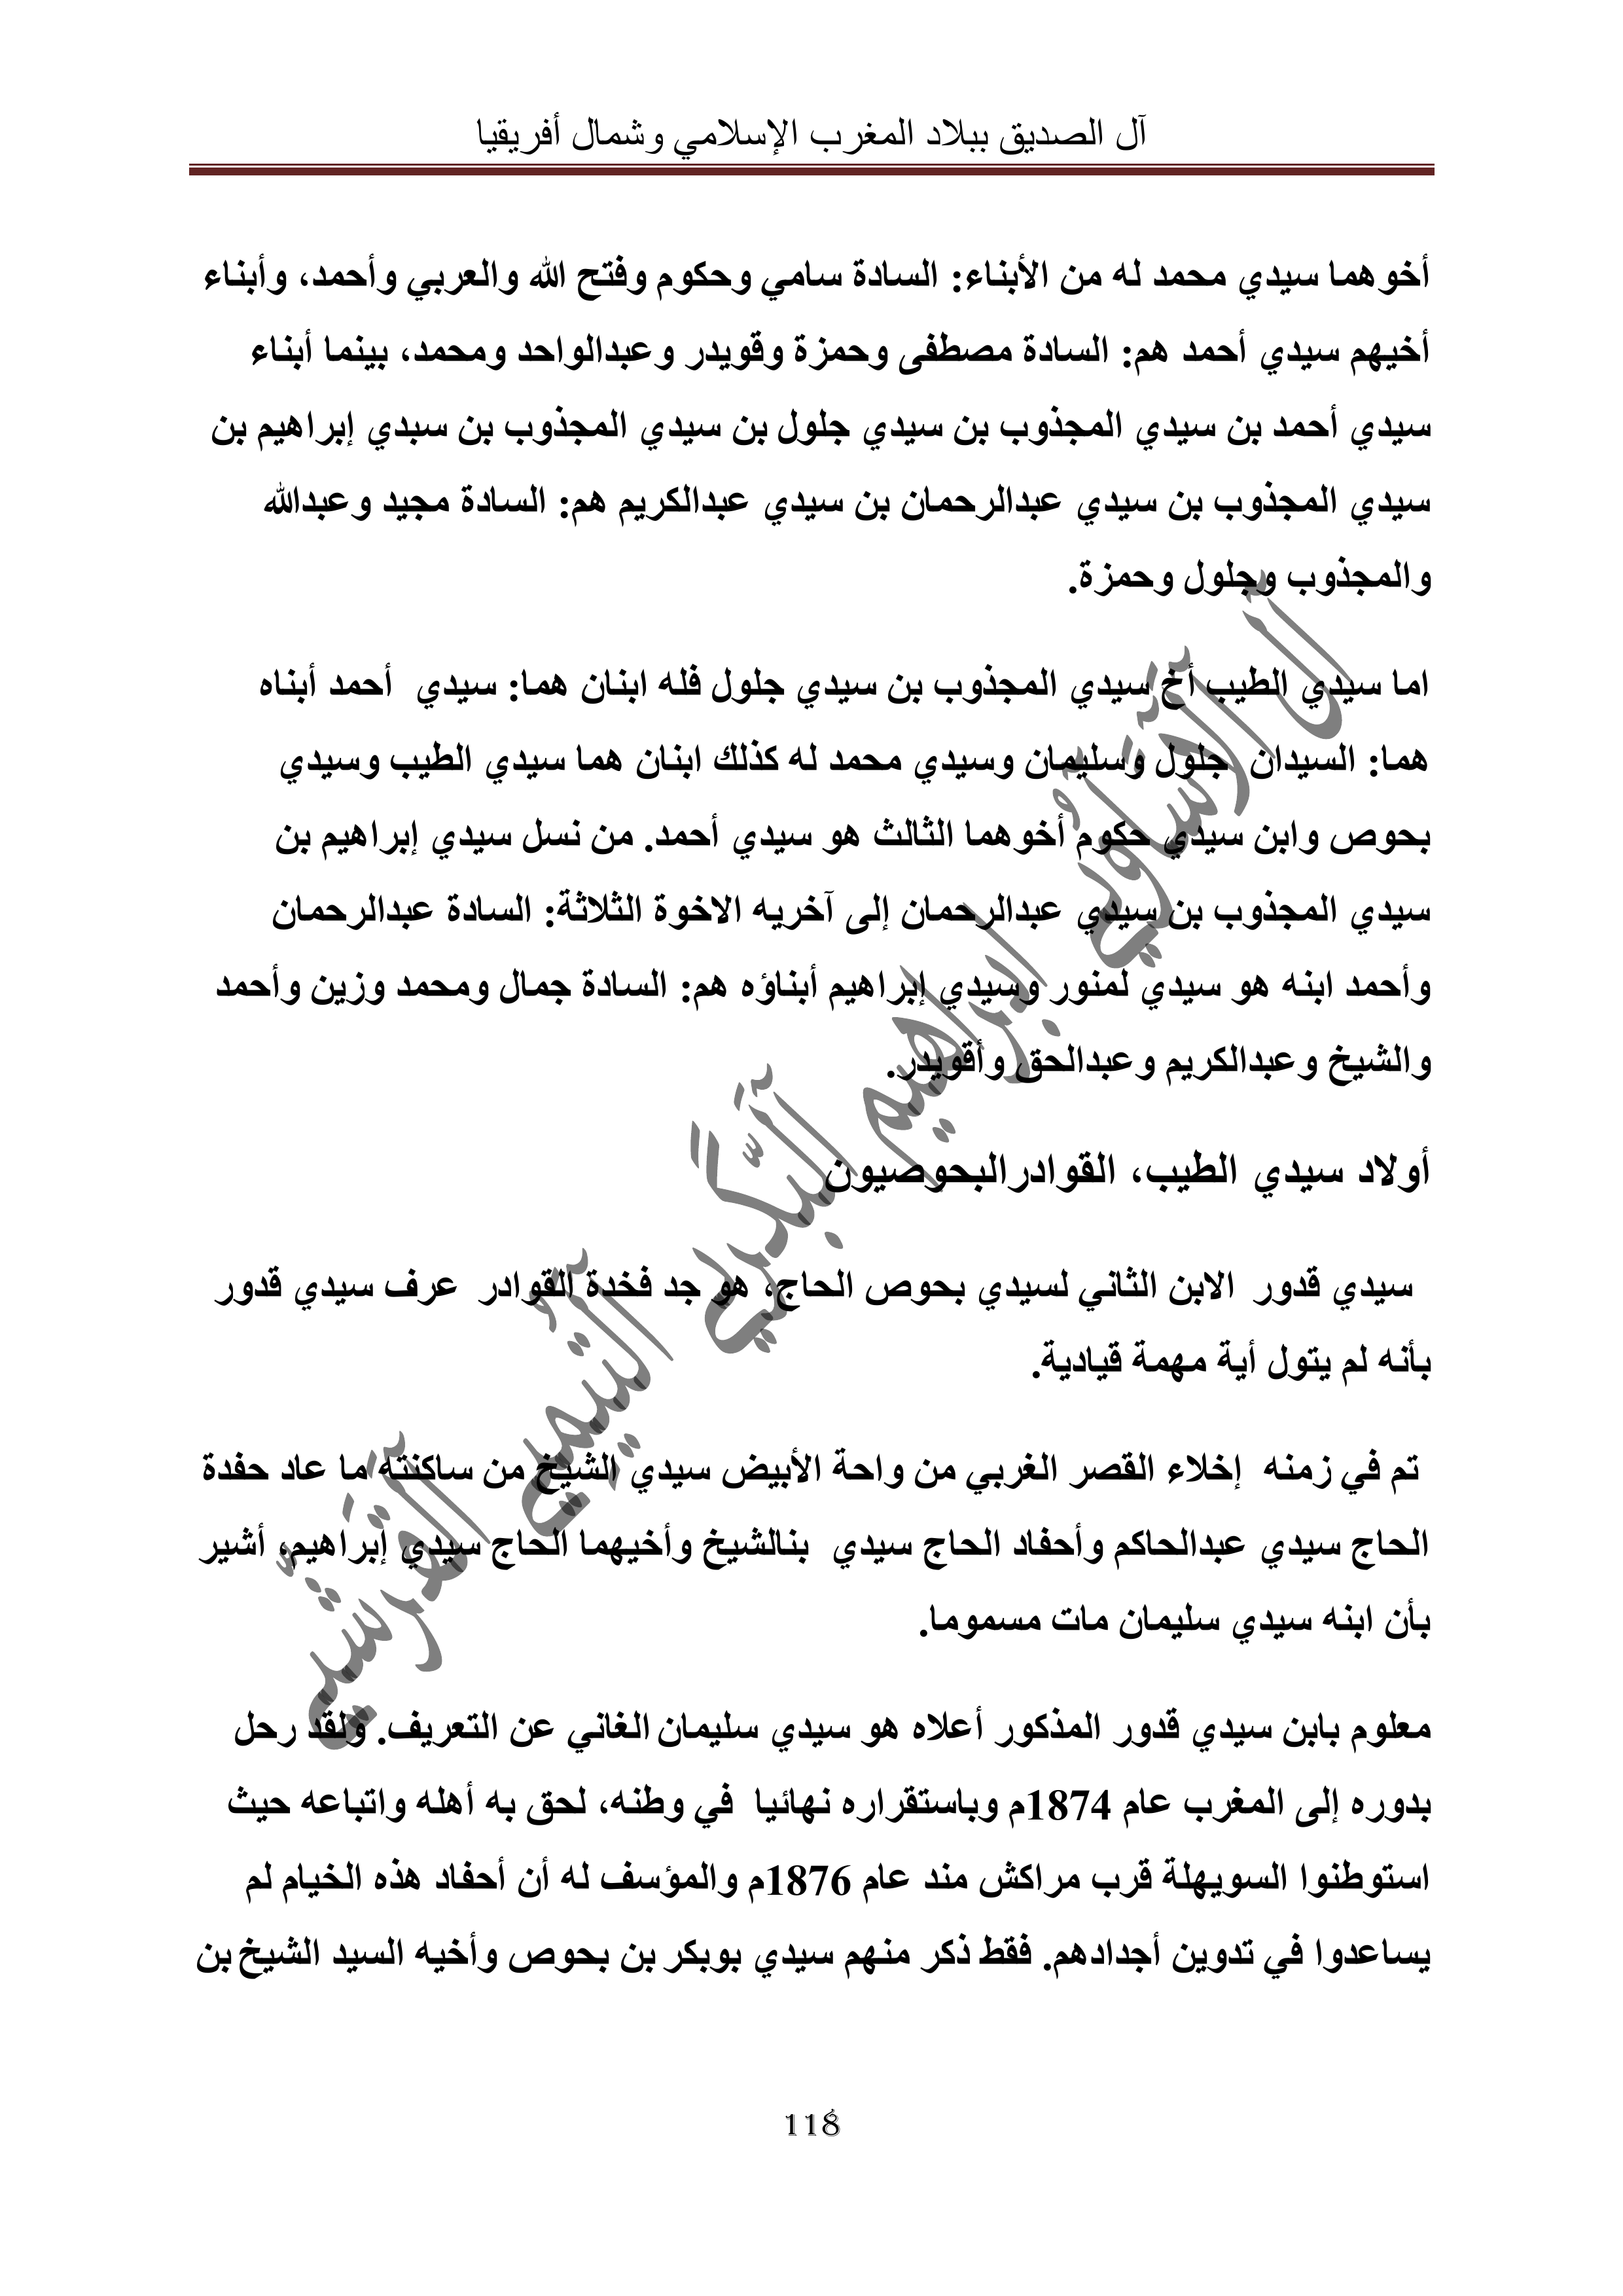 آل الصديق ببلاد المغرب الإسلامي وشمال أفريقيا
أخوهما سيدي محمد له من الأبناء: السادة سامي وحكوم وفتح الله والعربي وأحمد، وأبناء
أخيهم سيدي أحمد هم: السادة مصطفى وحمزة وقويدر وعبدالواحد ومحمد، بينما أبناء
سيدي أحمد بن سيدي المجذوب بن سيدي جلول بن سيدي المجذوب بن سبدي إبراهيم بن
سيدي المجذوب بن سيدي عبدالرحمان بن سيدي عبدالكريم هم: السادة مجيد وعبدالله
والمجذوب وجلول وحمزة.
اما سيدي الطيب أخ سيدي المجذوب بن سيدي جلول فله ابنان هما: سيدي أحمد أبناه
هما: السيدان جلول وسليمان وسيدي محمد له كذلك ابنان هما سيدي الطيب وسيدي
بحوص وابن سيدي حكوم أخوهما الثالث هو سيدي أحمد. من نسل سيدي إبراهيم بن
سيدي المجذوب بن سيدي عبدالرحمان إلى آخريه الاخوة الثلاثة: السادة عبدالرحمان
وأحمد ابنه هو سيدي لمنور وسيدي إبراهيم أبناؤه هم: السادة جمال ومحمد وزين وأحمد
والشيخ وعبدالكريم وعبدالحق وأقويدر.
أولاد سيدي الطيب، القوادرالبحوصيون
سيدي قدور الابن الثاني لسيدي بحوص الحاج، هو جد فخدة القوادر عرف سيدي قدور
بأنه لم يتول أية مهمة قيادية.
تم في زمنه إخلاء القصر الغربي من واحة الأبيض سيدي الشيخ من ساكنته ما عاد حفدة
الحاج سيدي عبدالحاكم وأحفاد الحاج سيدي بنالشيخ وأخيهما الحاج سيدي إبراهيم، أشير
بأن ابنه سيدي سليمان مات مسموما.
معلوم بابن سيدي قدور المذكور أعلاه هو سيدي سليمان الغاني عن التعريف. ولقد رحل
بدوره إلى المغرب عام 1874م وباستقراره نهائيا في وطنه، لحق به أهله واتباعه حيث
استوطنوا السويهلة قرب مراكش مند عام 1876م والمؤسف له أن أحفاد هذه الخيام لم
يساعدوا في تدوين أجدادهم. فقط ذكر منهم سيدي بوبكر بن بحوص وأخيه السيد الشيخ بن
118